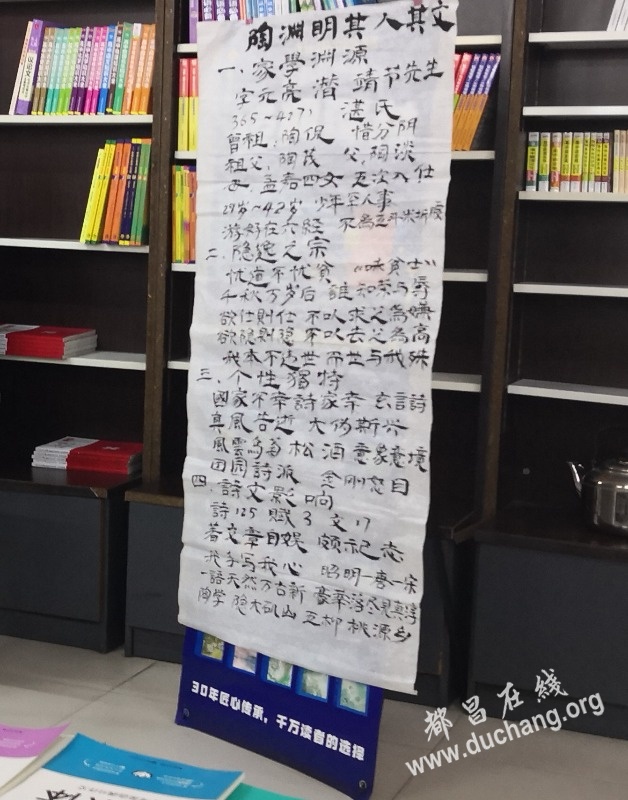 陶渊明其人其文
一、家學渊源
字元亮 潜 靖节先生
365～427) 湛氏
曾祖:陶侃 惜分阴
祖父:陶茂 父,陶淡
孟嘉四女 五次入仕
29岁～42岁 少年罕人事
游好在六经 不為五斗米折腰
二、隐逸之宗
忧道不忧贫 “咏贫士”
千秋万岁后 誰知荣与辱
欲仕則仕 不以求之為嫌
欲隐則隐 不以去之為高
我本不违世 而世与我殊
三、个性獨特
國家不幸詩家幸 玄言詩
真風告逝 大伪斯兴
風雲鸟菊松酒 意象意境
田园詩派 金刚怒目
四、詩文影响
詩125 賦3 文17
著文章自娱 颇示己志
我手写我心 昭明一序一宗
一語天然万古新 豪華落尽見真淳
陶学 隐大 山 五柳 桃源乡
30年匠心传承，千万读者的选择
都昌在线
www.duchang.org